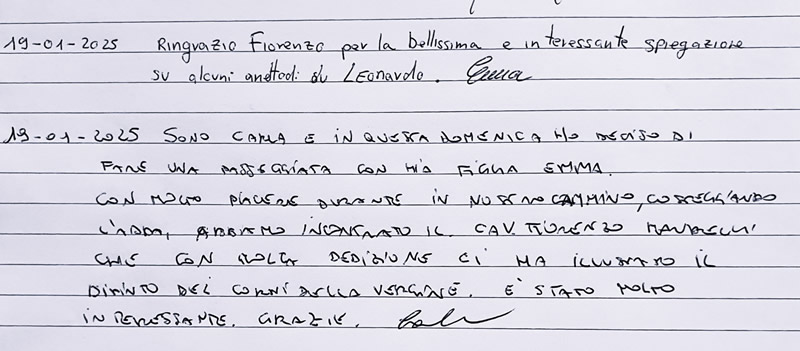 19-01-2025 Ringrazio Fiorenzo per la bellissima e interessante spiegazione
su alcuni anettodi di Leonardo. Emma
19-01-2025 SONO CARLA E IN QUESTA DOMENICA HO DECISO DI
FARE UNA PASSEGGIATA CON MIA FIGLIA EMMA.
CON MOLTO PIACERE DURANTE IN NOSTRO CAMMINO, COSTEGGIANDO
L'ADDA, ABBIAMO INCONTRATO IL CAV. FIORENZO MANDELLI
CHE CON MOLTA DEDIZIONE CI HA ILLUSTRATO IL
DIPINTO DEL DELLA VERGINE. E' STATO MOLTO
INTERESSANTE. GRAZIE.